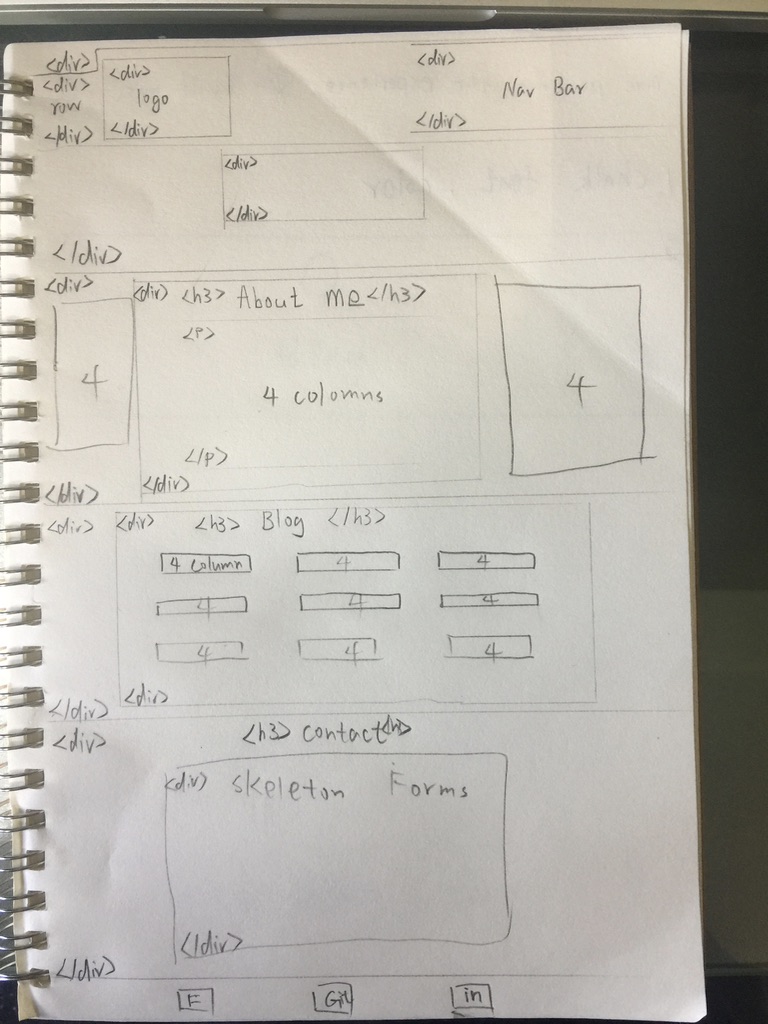 <div>
<div>
row
</div>
<div>
logo
</div>
<div>
Nav Bar
</div>
<div>
</div>
</div>
<div>
<div> <h3> About me </h3>
<P>
4 4 colomns 4
</p>
</div>
</div>
<div> <div> <h3> Blog </h3>
4 column 4 4
4 4 4
4 4 4
<div>
</div>
<div> <h3> contact
<div> Skeleton Forms
</div>
</div>
F Git in